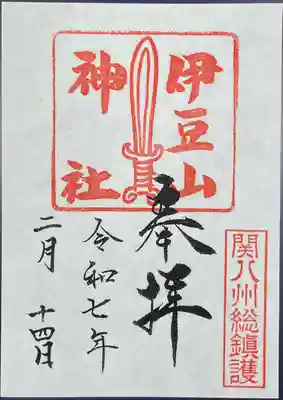 伊豆山
神社
関八州総鎮護
奉拝
令和七年
二月
十四日